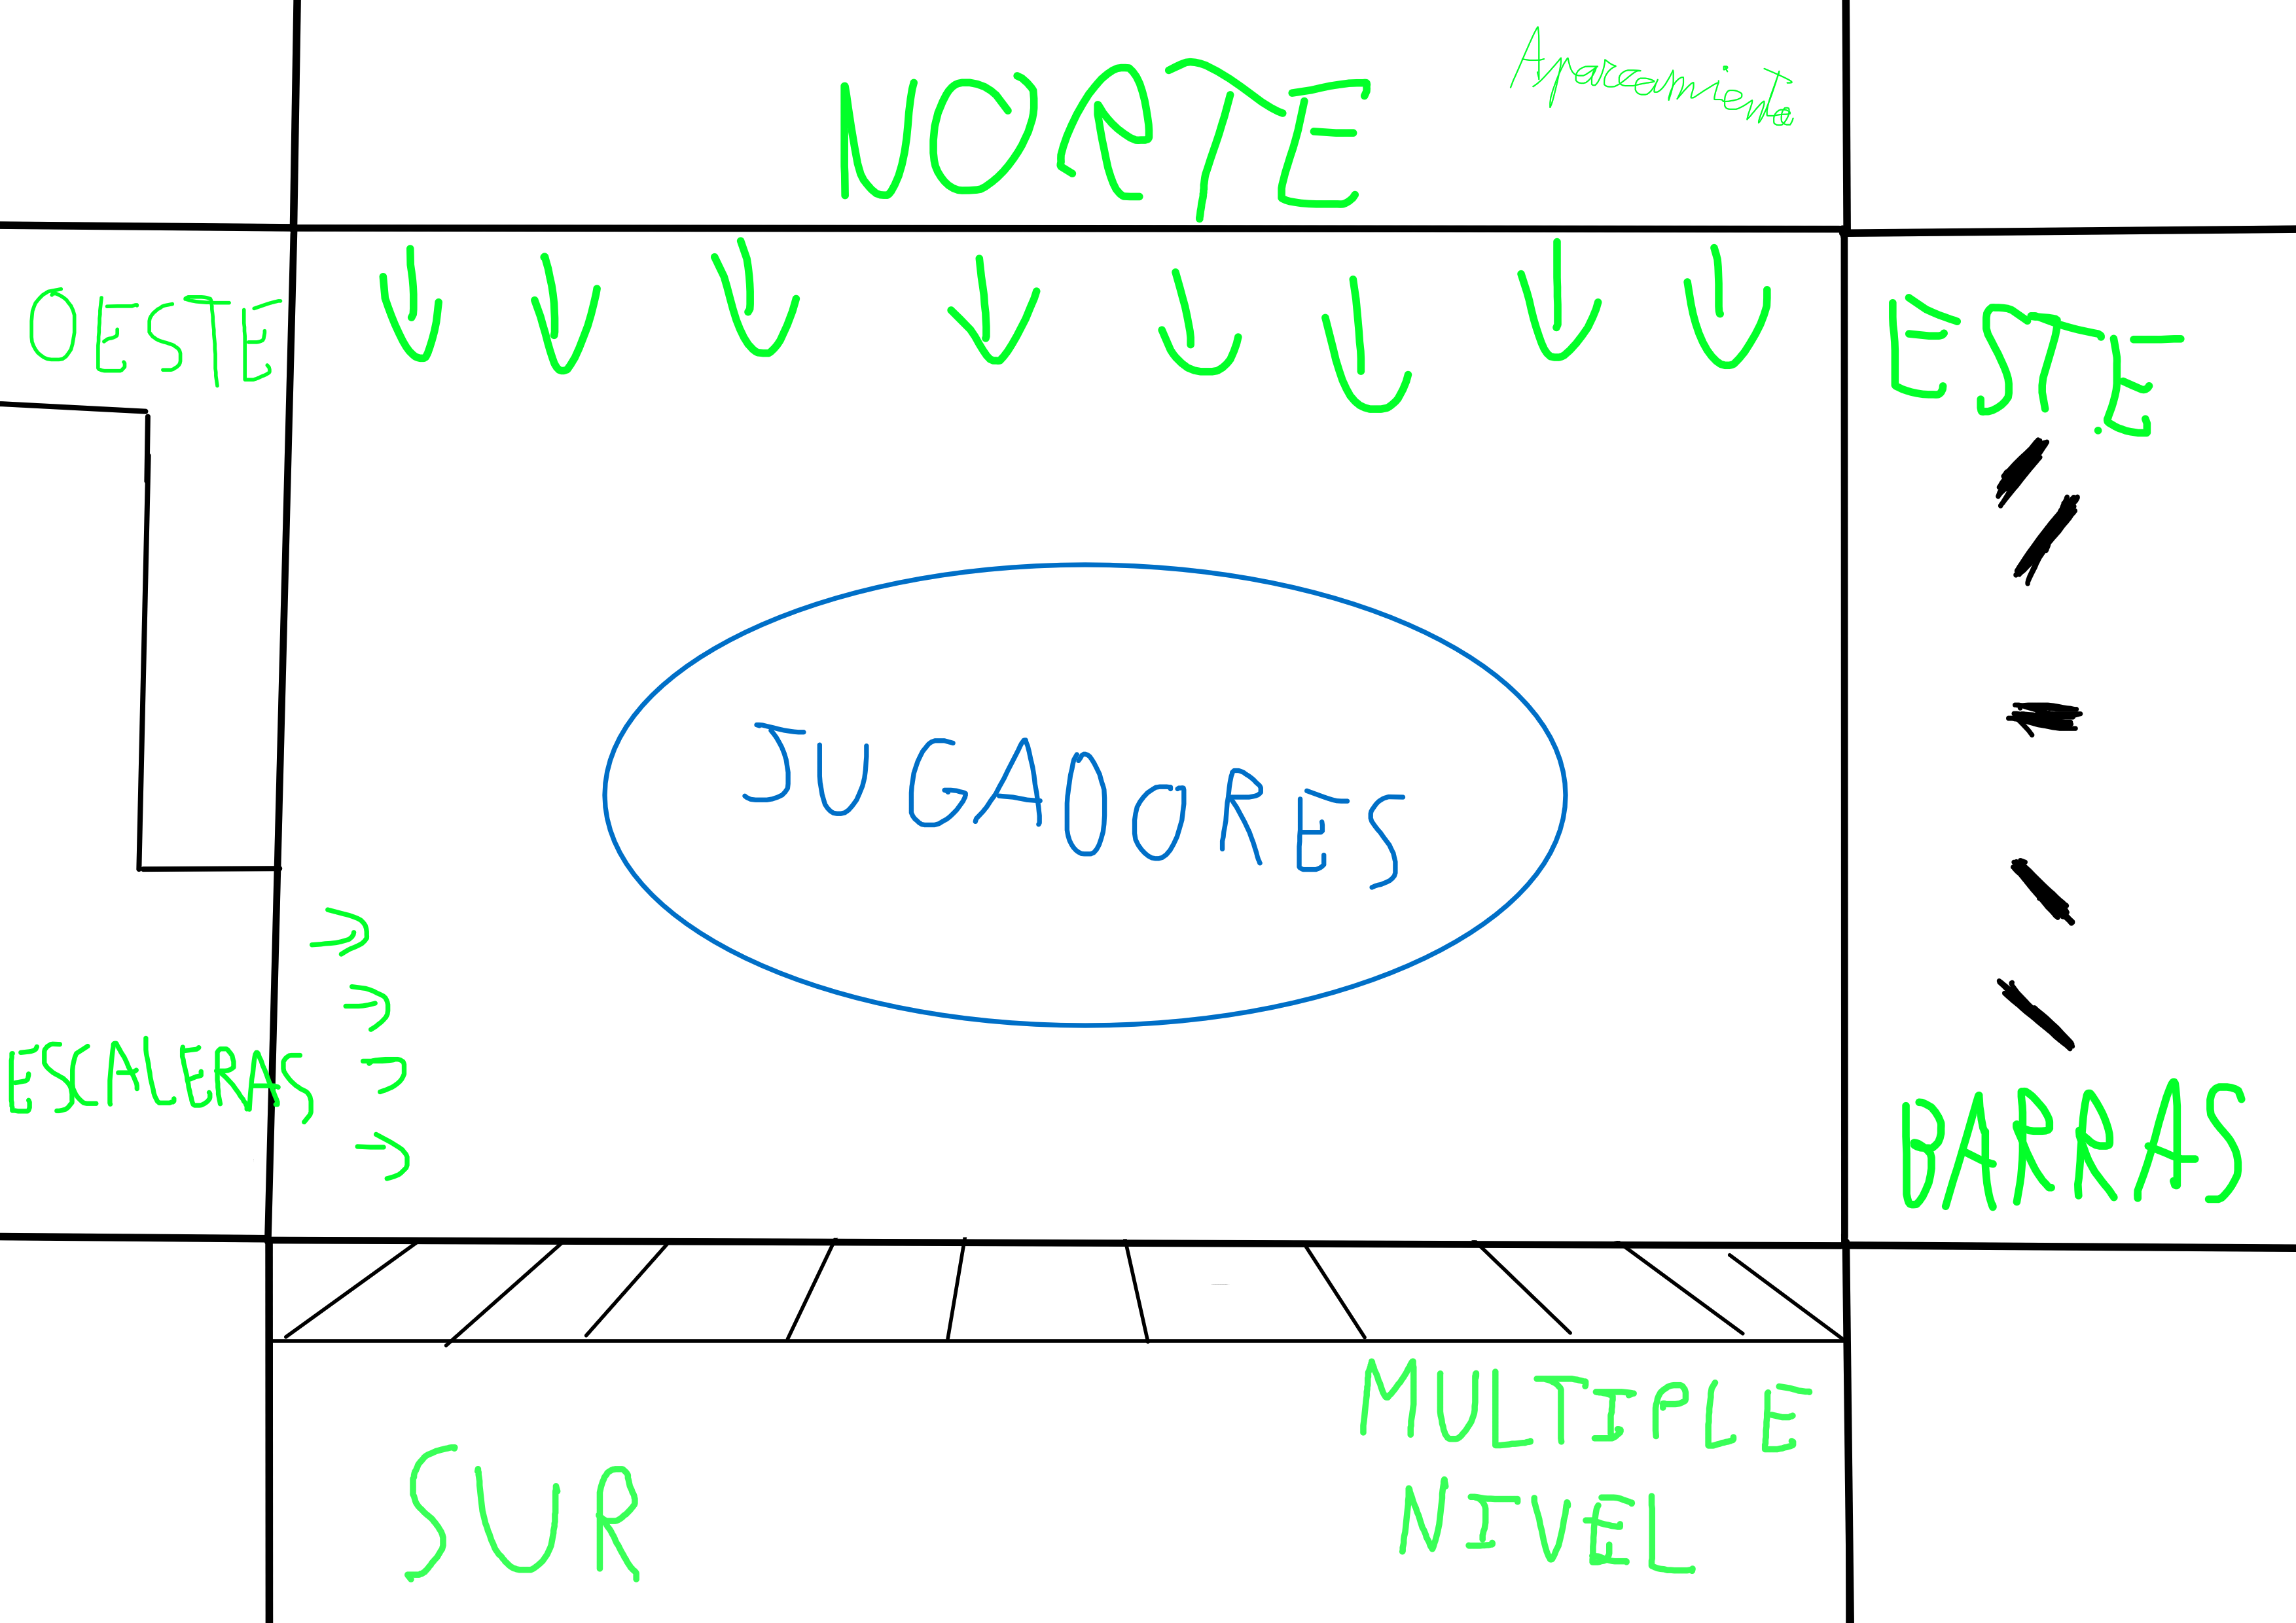 NORTE
Aparcamiento
OESTE
ESTE
JUGADORES
ESCALERAS
BARRAS
MULTIPLE
NIVEL
SUR